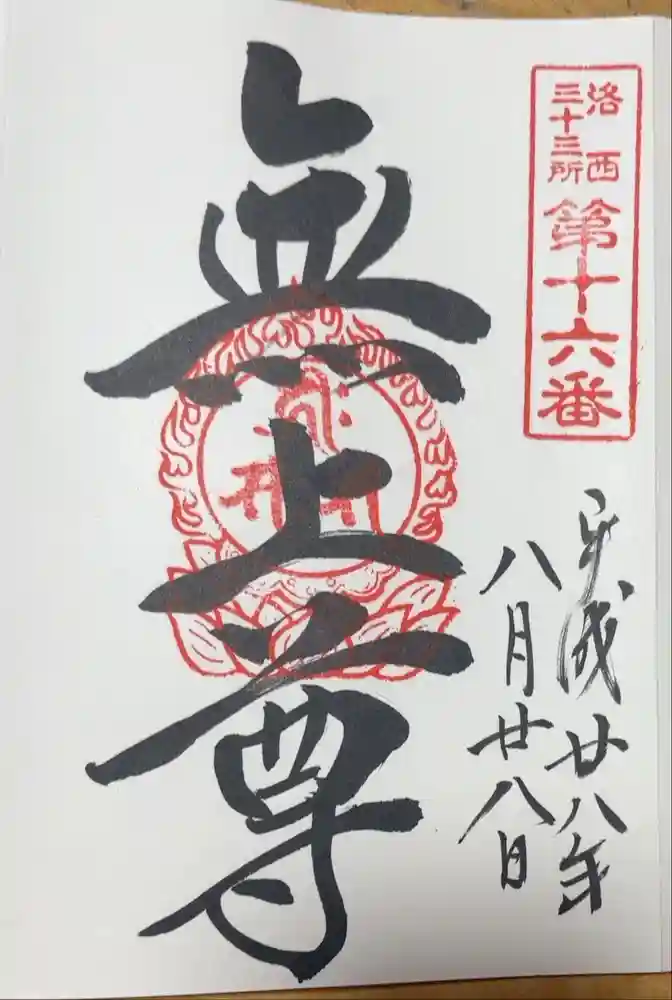 洛西
三十三所
第十六番
平成廿八年
八月廿八日
無上尊